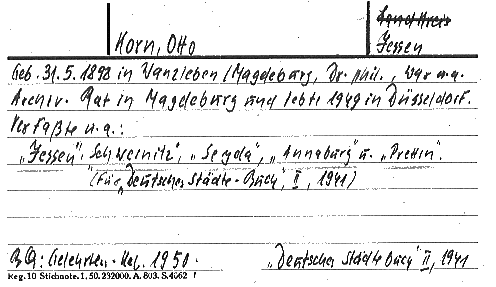 Land Kreis
Korn, Otto Jessen
Geb. 31.5.1898 in Wanzleben/Magdeburg, Dr. phil., war u.a.
Archiv-Rat in Magdeburg und lebte 1949 in Düsseldorf.
Verfaßte u.a.:
„Jessen“. Schweinitz“, „Seyda“, „Annaburg“ u. „Prettin“.
(Für „Deutsches Städte-Buch“, II, 1941)
BQ: Gelehrten-Kal. 1950. „Deutsches Städtebuch“ II, 1941
Reg. 10 Stichnote. 1. 50. 232000. A. 803. S. 4062